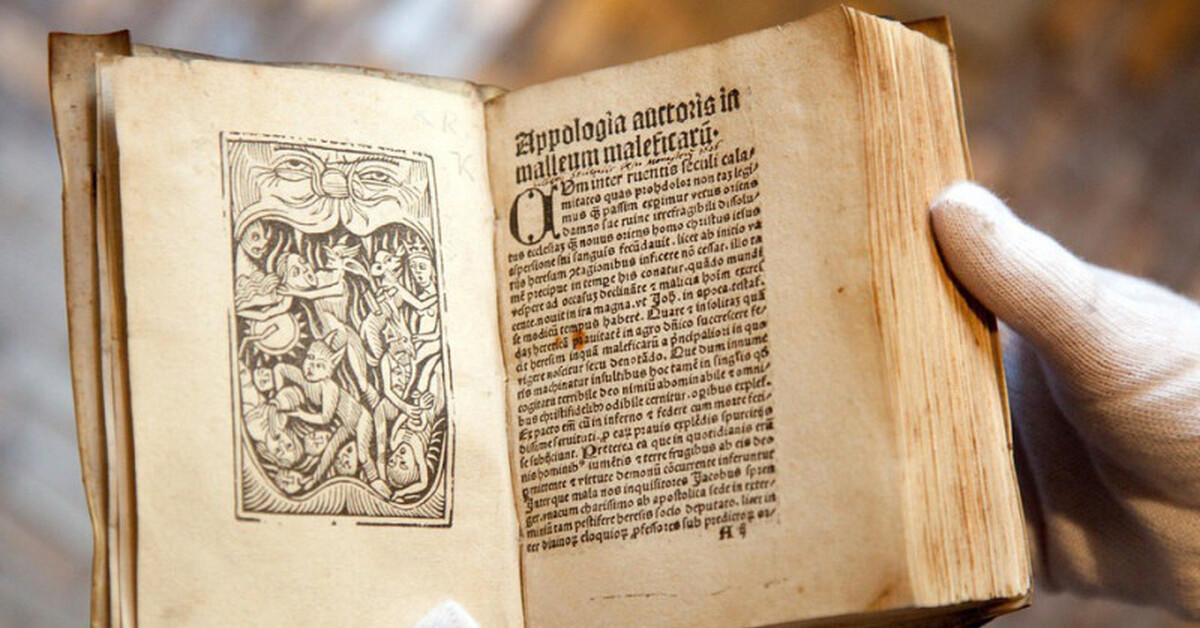 Appologia auctoris in
malleum maleficarū.
CUm inter ruentis seculi cala/
mitates quas prohdolor non taʒ legi/
mus qʒ passim experimur vetus oriens
damno sue ruine irrefragibili dissolu/
tus ecclesiaʒ qʒ nouus oriens homo christus iesus
aspersione sui sanguis fecūdauit. licet ab initio va
rijs heresum ɔtagionibus inficere nō cessat. illo ta
mē precipue in tempe his conatur. quādo mundi
vespere ad occasuʒ declināte ⁊ malicia hoīm excres
cente. nouit in ira magna. vt Joh. in apoca. testaf.
se modicū tempus habere. Quare ⁊ insolitaʒ quā
daʒ hereticā prauitatē in agro dn̄ico succrescere fe/
cit heresim inquā maleficarū a p̄ncipaliori in quo
vigere noscitur sexu denotādo. Que dum innume
ris machinatur insultibus hoc tamē in singl'is qḋ
cogitatu terribile deo nimiū abominabile ⁊ omni/
bus christifidelibꝰ odibile cernitur. opibus explef.
Ex pacto em̄ cū inferno ⁊ federe cum morte feti/
dissime seruituti. ꝓ eaꝝ prauis explēdis spurcitijs
se subijciunt. Preterea ea que in quotidianis erū
nis hominibꝰ iumētis ⁊ terre frugibus ab eis deo
pmittente ⁊ virtute demonū cōcurrente inferuntur
Inter que mala nos inquisitores Jacobus spren
ger. vnacum charissimo ab apostolica sede in exter/
miniū tam pestifere heresis socio deputato. licet in
ter diuinoꝝ eloquioꝝ ꝓfessores sub predictoꝝ or/
A ij